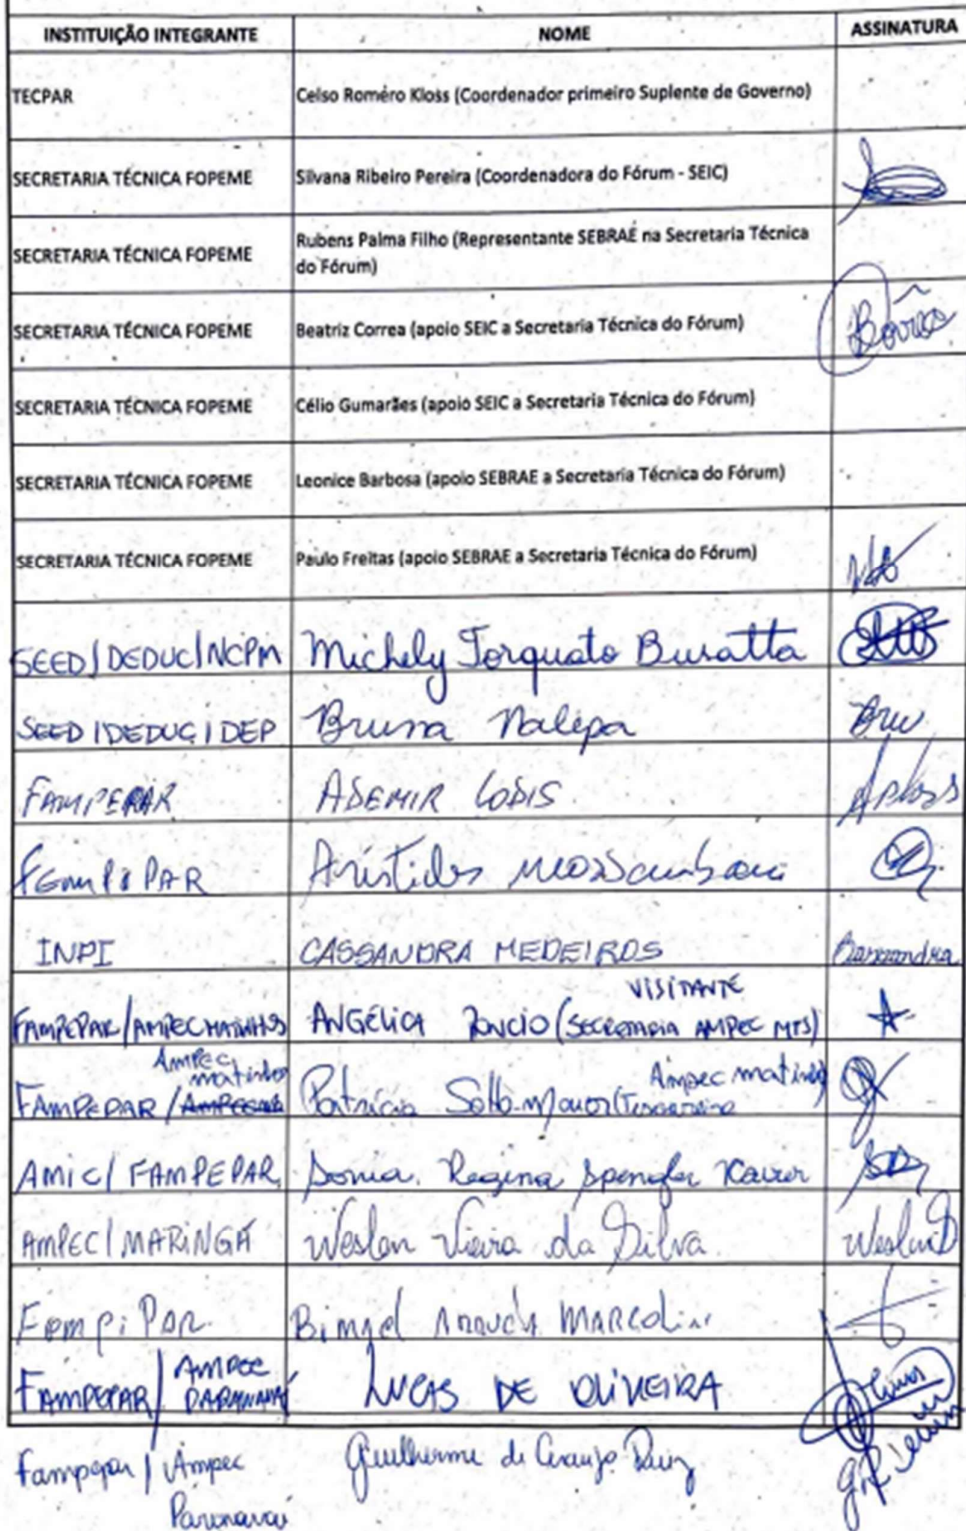 INSTITUIÇÃO INTEGRANTE NOME ASSINATURA
TECPAR Celso Roméro Kloss (Coordenador primeiro Suplente de Governo)
SECRETARIA TÉCNICA FOPEME Silvana Ribeiro Pereira (Coordenadora do Fórum - SEIC)
SECRETARIA TÉCNICA FOPEME Rubens Palma Filho (Representante SEBRAE na Secretaria Técnica
do Fórum)
SECRETARIA TÉCNICA FOPEME Beatriz Correa (apoio SEIC a Secretaria Técnica do Fórum)
SECRETARIA TÉCNICA FOPEME Célio Gumarães (apoio SEIC a Secretaria Técnica do Fórum)
SECRETARIA TÉCNICA FOPEME Leonice Barbosa (apoio SEBRAE a Secretaria Técnica do Fórum)
SECRETARIA TÉCNICA FOPEME Paulo Freitas (apoio SEBRAE a Secretaria Técnica do Fórum)
SEED/DEDUC/NCPM Michely Torquato Buratta
SEED/DEDUC/DEP Bruna Nalepa Bru
FAMPEPAR ADEMIR
FEMPIPAR Aristides
INPI CASSANDRA MEDEIROS Cassandra
VISITANTE
FAMPEPAR/AMPEC MATINHOS ANGÉLICA (SECRETARIA AMPEC MTS)
Ampec matinhos Ampec matinhos
FAMPEPAR / Patrícia Sotto-Maior (Tesoureira
AMIC/FAMPEPAR Sonia Regina Spengler Xavier
AMPEC/MARINGÁ Weslen Vieira da Silva
FempiPar MARCOLINI
AMPEC
FAMPEPAR/ PARANAVAÍ LUCAS DE OLIVEIRA
Fampepar / Ampec Guilherme de Araujo
Paranavaí